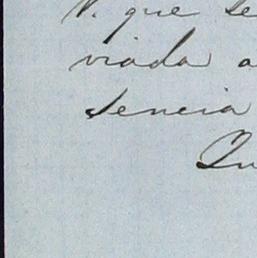 V. que se
viada a
sencia
Qu